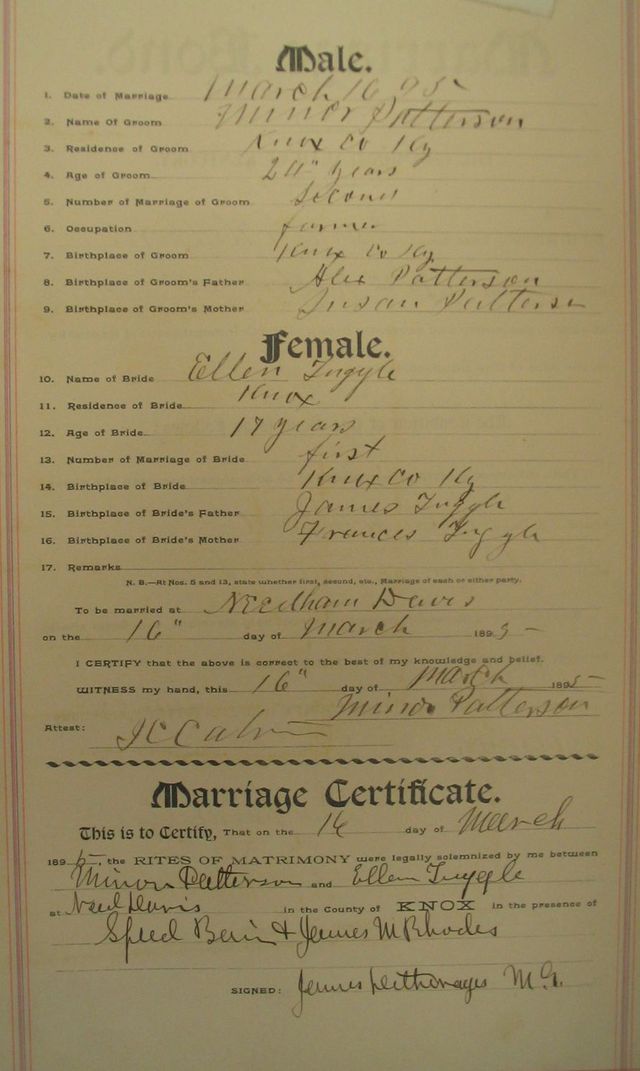 Male.
1. Date of Marriage March 16 95
2. Name Of Groom Minor Patterson
3. Residence of Groom Knox Co Ky
4. Age of Groom years
5. Number of Marriage of Groom Second
6. Occupation farmer
7. Birthplace of Groom Knox Co Ky.
8. Birthplace of Groom's Father Alex Patterson
9. Birthplace of Groom's Mother Susan Patterson
Female.
10. Name of Bride Ellen Tuggle
11. Residence of Bride Knox
12. Age of Bride 17 years
13. Number of Marriage of Bride first
14. Birthplace of Bride Knox Co Ky
15. Birthplace of Bride's Father James Tuggle
16. Birthplace of Bride's Mother Frances Tuggle
17. Remarks
N. B.—At Nos. 5 and 13, state whether first, second, etc., Marriage of each or either party.
To be married at Needham Davis
on the 16" day of March 1895
I CERTIFY that the above is correct to the best of my knowledge and belief.
WITNESS my hand, this 16" day of March 1895
Minor Patterson
Attest: J C
Marriage Certificate.
This is to Certify, That on the 16 day of March
1895, the RITES OF MATRIMONY were legally solemnized by me between
Minor Patterson and Ellen Tuggle
at Need Davis in the County of KNOX in the presence of
Speed & James M Rhodes
SIGNED: James M.G.